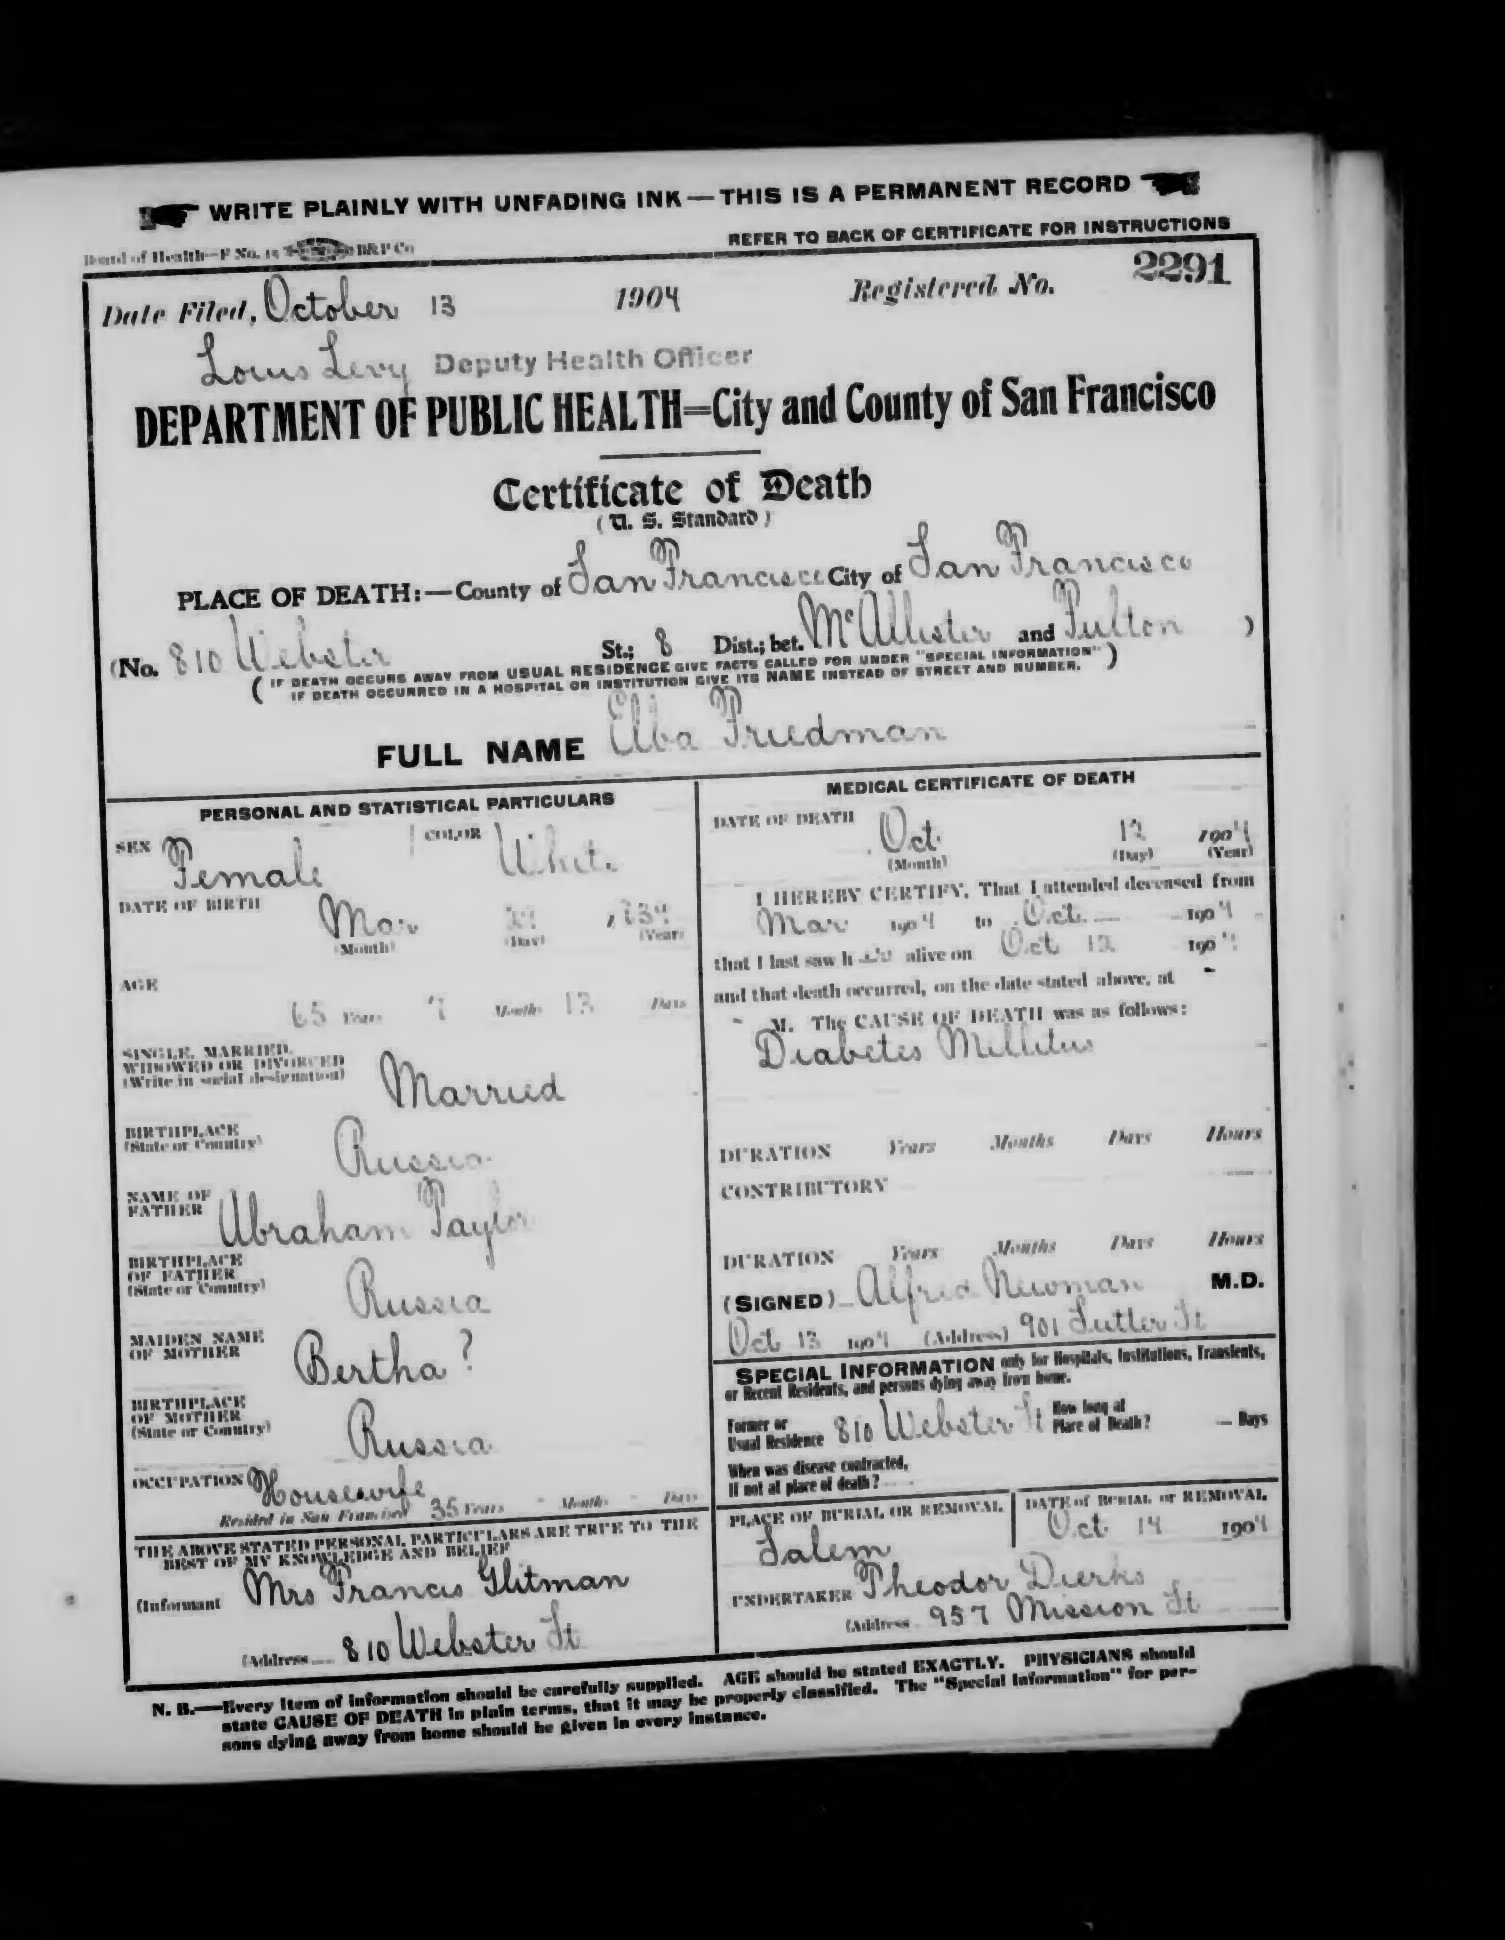 WRITE PLAINLY WITH UNFADING INK—THIS IS A PERMANENT RECORD
Board of Health—F No. 15 B&P Co
REFER TO BACK OF CERTIFICATE FOR INSTRUCTIONS
Date Filed, October 13 1904 Registered No. 2291
Louis Levy Deputy Health Officer
DEPARTMENT OF PUBLIC HEALTH=City and County of San Francisco
Certificate of Death
(U. S. Standard)
PLACE OF DEATH:—County of San Francisco City of San Francisco
(No. 810 Webster St.; 8 Dist.; bet. McAllister and Fulton )
( IF DEATH OCCURS AWAY FROM USUAL RESIDENCE GIVE FACTS CALLED FOR UNDER "SPECIAL INFORMATION" )
IF DEATH OCCURRED IN A HOSPITAL OR INSTITUTION GIVE ITS NAME INSTEAD OF STREET AND NUMBER.
FULL NAME Elba Friedman
PERSONAL AND STATISTICAL PARTICULARS
SEX Female COLOR White
DATE OF BIRTH Mar
(Month) (Day) (Year)
AGE
65 Years 7 Months 13 Days
SINGLE, MARRIED,
WIDOWED OR DIVORCED
(Write in social designation) Married
BIRTHPLACE
(State or Country) Russia
NAME OF
FATHER Abraham Taylor
BIRTHPLACE
OF FATHER
(State or Country) Russia
MAIDEN NAME
OF MOTHER Bertha ?
BIRTHPLACE
OF MOTHER
(State or Country) Russia
OCCUPATION Housewife
Resided in San Francisco 35 Years - Months - Days
THE ABOVE STATED PERSONAL PARTICULARS ARE TRUE TO THE
BEST OF MY KNOWLEDGE AND BELIEF
(Informant Mrs Francis Glitman
(Address 810 Webster St
MEDICAL CERTIFICATE OF DEATH
DATE OF DEATH Oct. 12 1904
(Month) (Day) (Year)
I HEREBY CERTIFY, That I attended deceased from
Mar 1904 to Oct. 1904
that I last saw h alive on Oct 12 1904
and that death occurred, on the date stated above, at -
- M. The CAUSE OF DEATH was as follows:
Diabetes Mellitus
DURATION Years Months Days Hours
CONTRIBUTORY
DURATION Years Months Days Hours
(SIGNED) Alfred Newman M.D.
Oct 13 1904 (Address) 901 Sutter St
SPECIAL INFORMATION only for Hospitals, Institutions, Transients,
or Recent Residents, and persons dying away from home.
Former or
Usual Residence 810 Webster St How long at
Place of Death? — Days
When was disease contracted,
If not at place of death?
PLACE OF BURIAL OR REMOVAL DATE of BURIAL or REMOVAL
Salem Oct 14 1904
UNDERTAKER Theodor Dierks
(Address 957 Mission St
N. B.—Every item of information should be carefully supplied. AGE should be stated EXACTLY. PHYSICIANS should
state CAUSE OF DEATH in plain terms, that it may be properly classified. The "Special Information" for per-
sons dying away from home should be given in every instance.